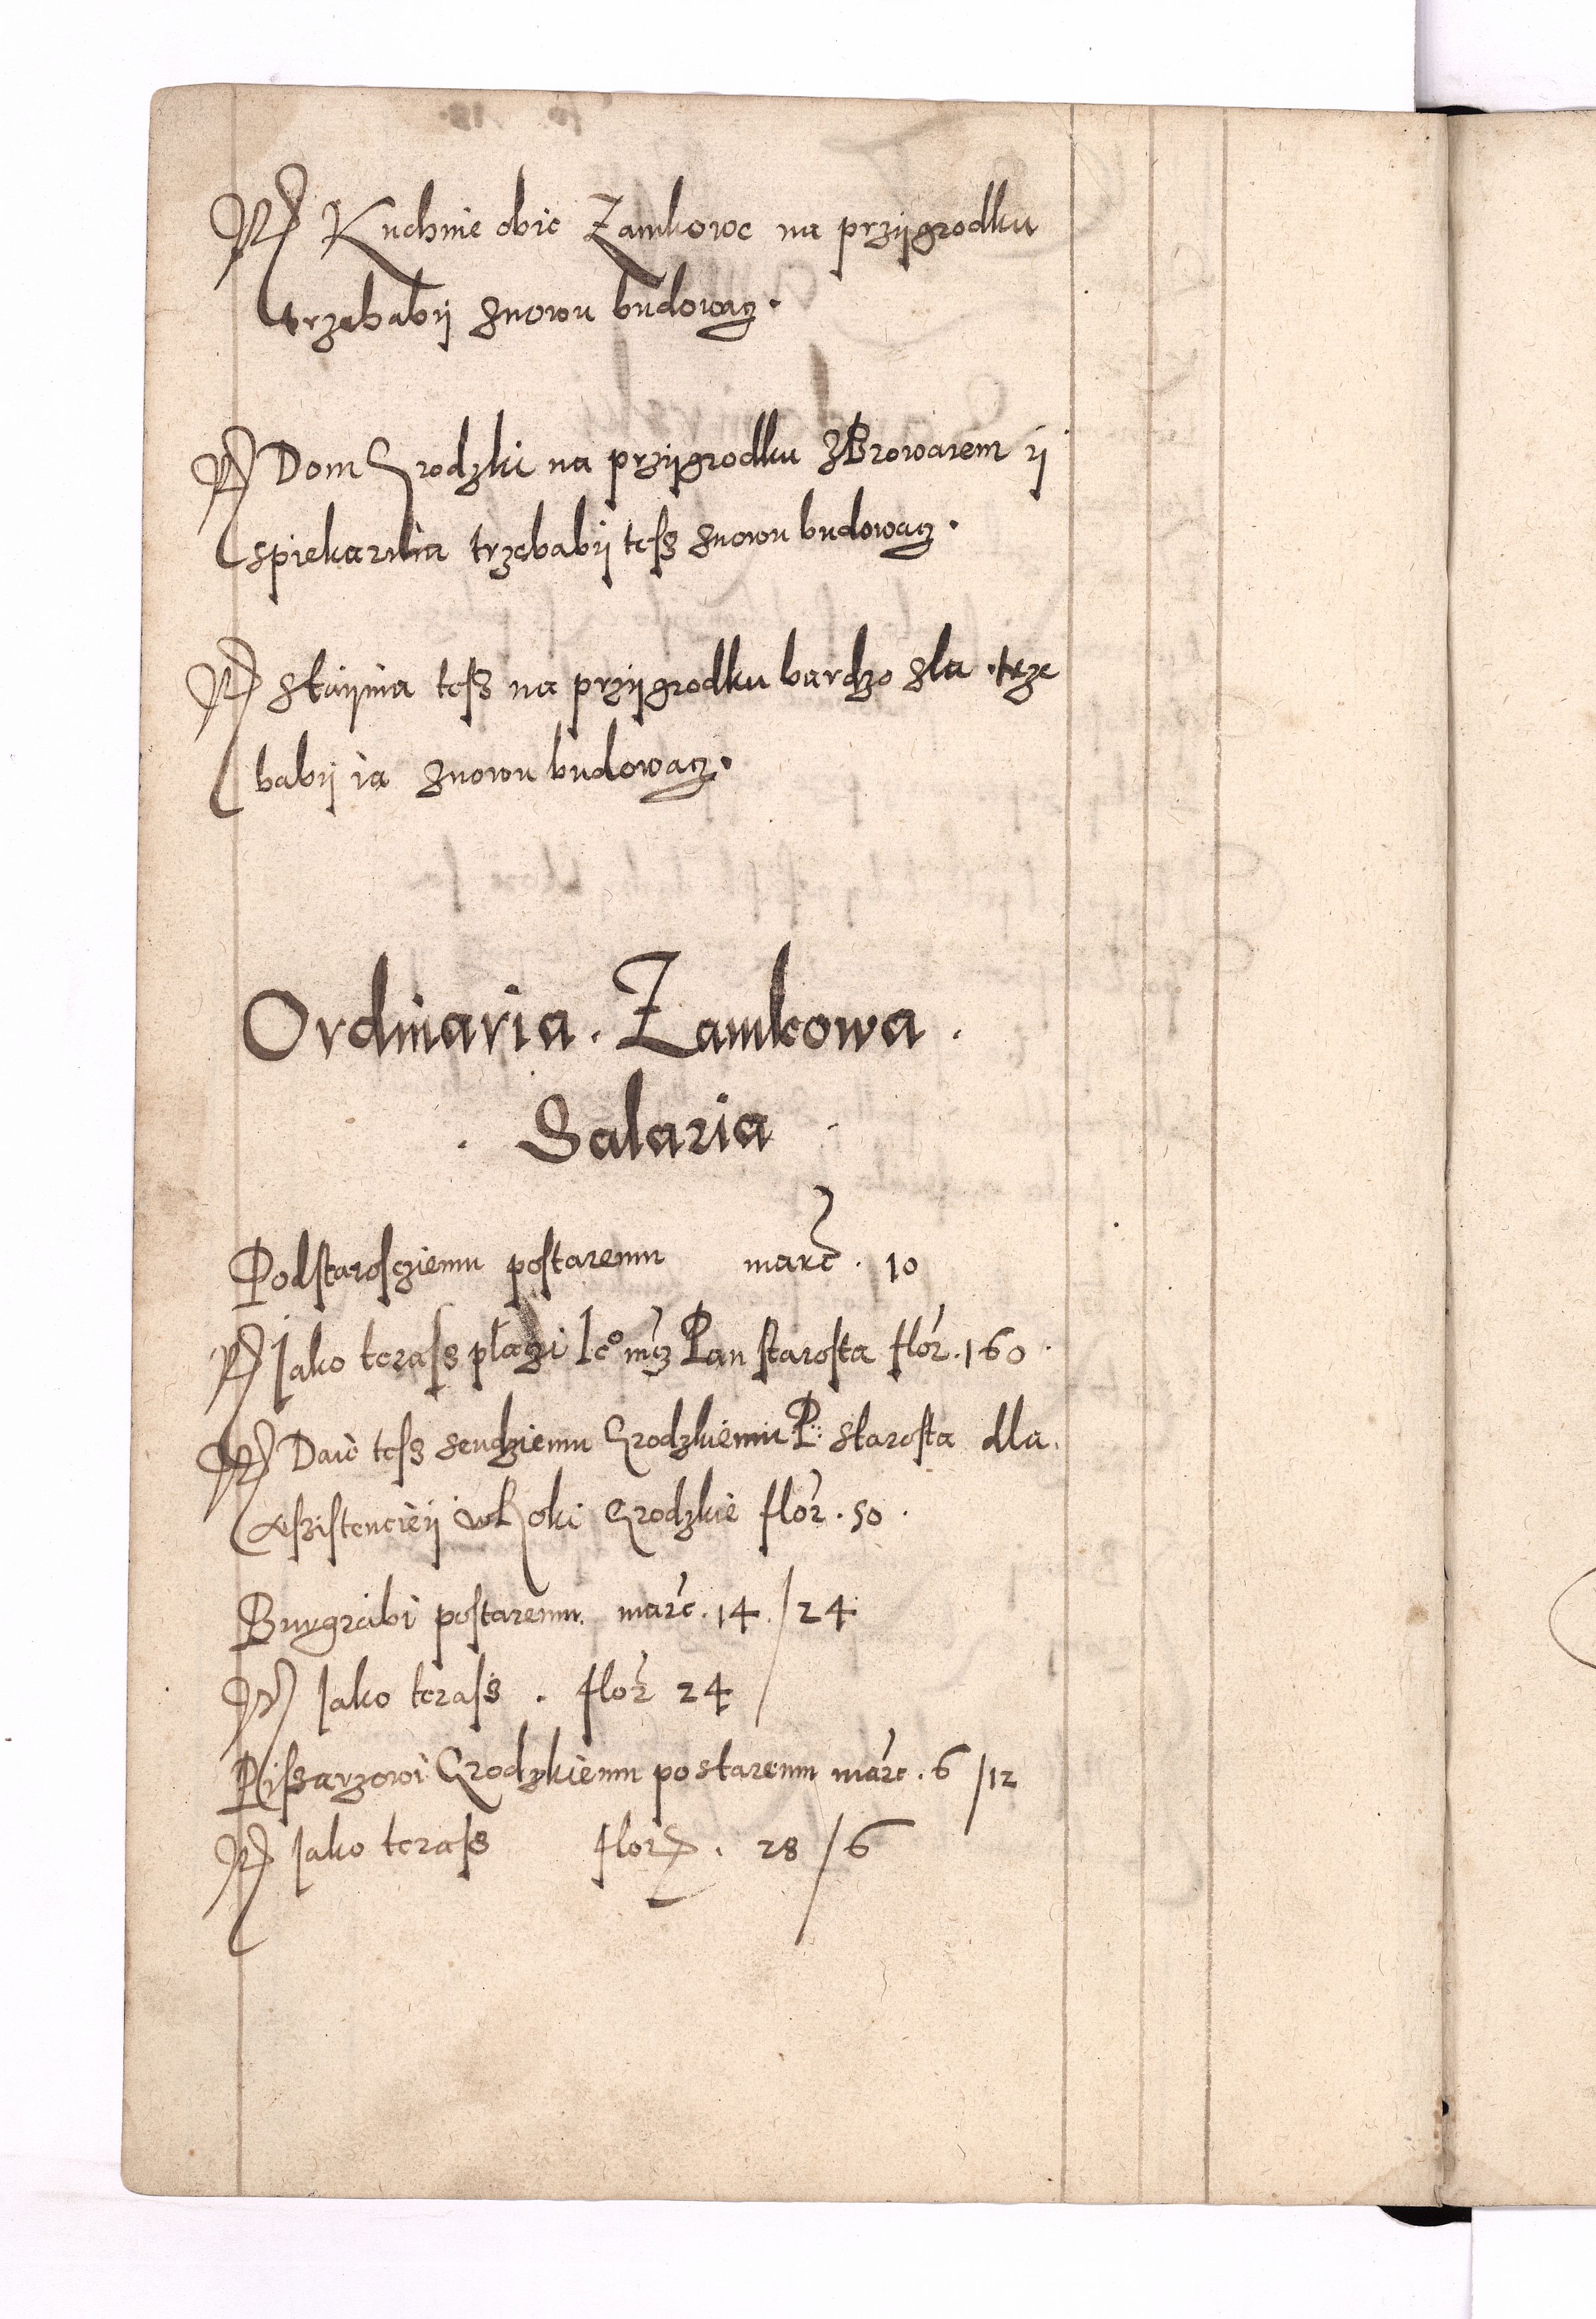 Kuchnie obie Zamkowe na przijgrodku
trzebabij znowu budowacz.
Dom Grodzki na przijgrodku zBrowarem ij
spiekarnia trzebabij tess znowu budowacz.
staynia tess na przijgrodku bardzo zla. trze
babij ia znowu budowacz.
Ordinaria. Zamkowa.
. Salaria .
Podstaroscziemu postaremu marc. 10
Jako terass placzi Je° mcz Pan starosta flor. 160.
Daie tess sendziemu Grodzkiemu P: starosta dla.
Assistencieij wRoki Grodzkie flor. 50.
Burgrabi postaremu. marc. 14. / 24
Jako terass. flor 24
Pissarzowi Grodzkiemu postaremu marc. 6 / 12
Jako terass flor. 28 / 6